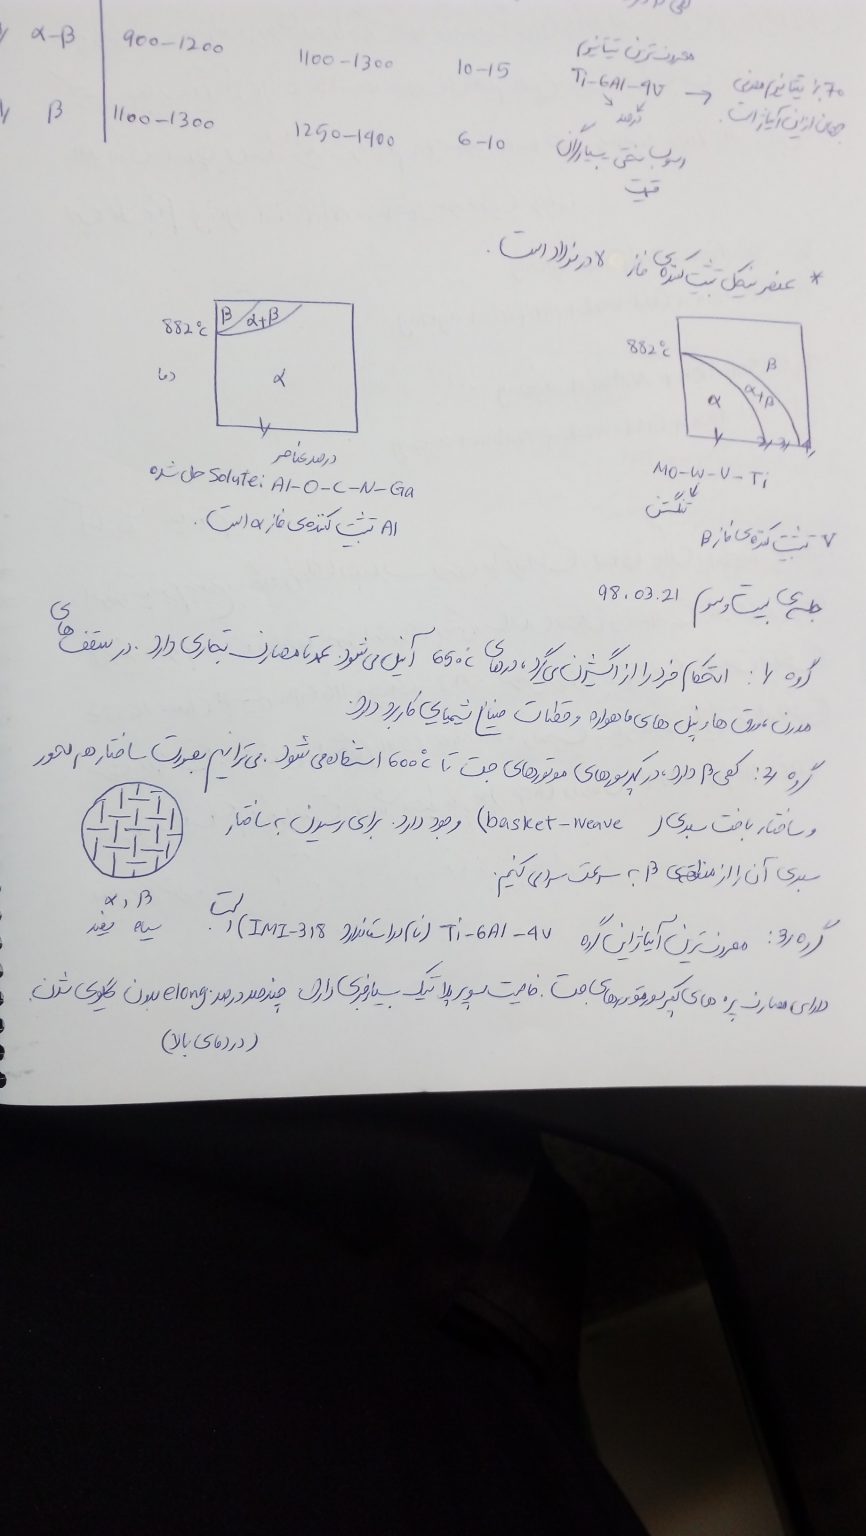 α-β 900-1200 1100-1300 10-15 معروف‌ترین تیتانیوم
Ti-6Al-4V → 70٪ تیتانیوم مصرفی
درصد جهان از این آلیاژ است.
β 1100-1300 1250-1400 6-10 رسوب سختی بسیار گران
قیمت
* عنصر نیکل تثبیت کننده‌ی فاز γ در فولاد است.
882°C β α+β α
دما
882°C β α+β α
درصد عناصر
Solute: Al-O-C-N-Ga حل شده
Al تثبیت کننده‌ی فاز α است.
Mo-W-V-Ti
تنگستن
V تثبیت کننده‌ی فاز β
جلسه‌ی بیست و سوم 98.03.21
گروه 1: استحکام خود را از اکسیژن می‌گیرد، در دمای 650°C آنیل می‌شود. عمدتا مصارف تجاری دارد. در سقف‌های
مدرن، ورق‌ها و پنل‌های ماهواره و قطعات صنایع شیمیایی کاربرد دارد.
گروه 2: کمی β دارد، در کمپرسورهای موتورهای جت تا 600°C استفاده می‌شود. می‌توانیم بصورت ساختار هم محور
و ساختار بافت سبدی (basket-weave) وجود دارد. برای رسیدن به ساختار
سبدی آن را از منطقه‌ی β به سرعت سرد می‌کنیم.
α , β
سیاه سفید
گروه 3: معروف‌ترین آلیاژ این گروه Ti-6Al-4V (نام در استاندارد IMI-318) است
دارای مصارف پره‌های کمپرسور موتورهای جت. خاصیت سوپر پلاستیک بسیار خوبی دارد. چند صد درصد elong. بدون گلویی شدن.
(در دمای بالا)